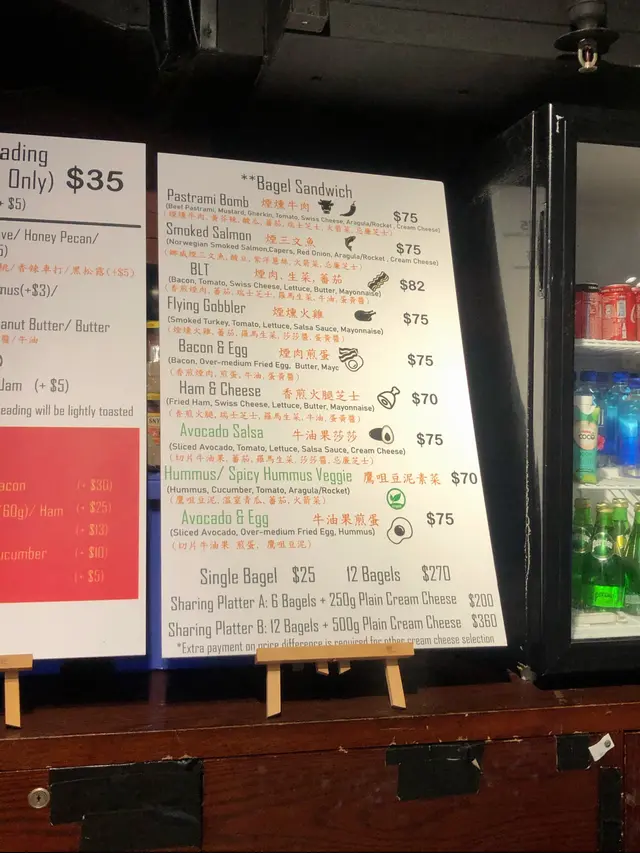 ading
Only) $35
+ $5)
ve/ Honey Pecan/
5)
桃/香辣車打/黑松露(+$5)
nus(+$3)/
anut Butter/ Butter
醬/牛油
)
Jam (+ $5)
eading will be lightly toasted
acon (+ $30)
(60g)/ Ham (+ $25)
(+ $13)
ucumber (+ $10)
(+ $5)
**Bagel Sandwich
Pastrami Bomb 煙燻牛肉 $75
(Beef Pastrami, Mustard, Gherkin, Tomato, Swiss Cheese, Aragula/Rocket, Cream Cheese)
Smoked Salmon 煙三文魚 $75
(Norwegian Smoked Salmon, Capers, Red Onion, Aragula/Rocket, Cream Cheese)
BLT 煙肉,生菜,蕃茄 $82
(Bacon, Tomato, Swiss Cheese, Lettuce, Butter, Mayonnaise)
(香煎煙肉,蕃茄,瑞士芝士,羅馬生菜,牛油,蛋黃醬)
Flying Gobbler 煙燻火雞 $75
(Smoked Turkey, Tomato, Lettuce, Salsa Sauce, Mayonnaise)
(煙燻火雞,蕃茄,羅馬生菜,莎莎醬,蛋黃醬)
Bacon & Egg 煙肉煎蛋 $75
(Bacon, Over-medium Fried Egg, Butter, Mayo
(香煎煙肉,煎蛋,牛油,蛋黃醬)
Ham & Cheese 香煎火腿芝士 $70
(Fried Ham, Swiss Cheese, Lettuce, Butter, Mayonnaise)
(香煎火腿,瑞士芝士,羅馬生菜,牛油,蛋黃醬)
Avocado Salsa 牛油果莎莎 $75
(Sliced Avocado, Tomato, Lettuce, Salsa Sauce, Cream Cheese)
(切片牛油果,蕃茄,羅馬生菜,莎莎醬,忌廉芝士)
Hummus/ Spicy Hummus Veggie 鷹咀豆泥素菜 $70
(Hummus, Cucumber, Tomato, Aragula/Rocket)
(鷹咀豆泥,溫室青瓜,蕃茄,火箭菜)
Avocado & Egg 牛油果煎蛋 $75
(Sliced Avocado, Over-medium Fried Egg, Hummus)
(切片牛油果 煎蛋, 鷹咀豆泥)
Single Bagel $25 12 Bagels $270
Sharing Platter A: 6 Bagels + 250g Plain Cream Cheese $200
Sharing Platter B: 12 Bagels + 500g Plain Cream Cheese $360
*Extra payment on price difference is required for other cream cheese selection